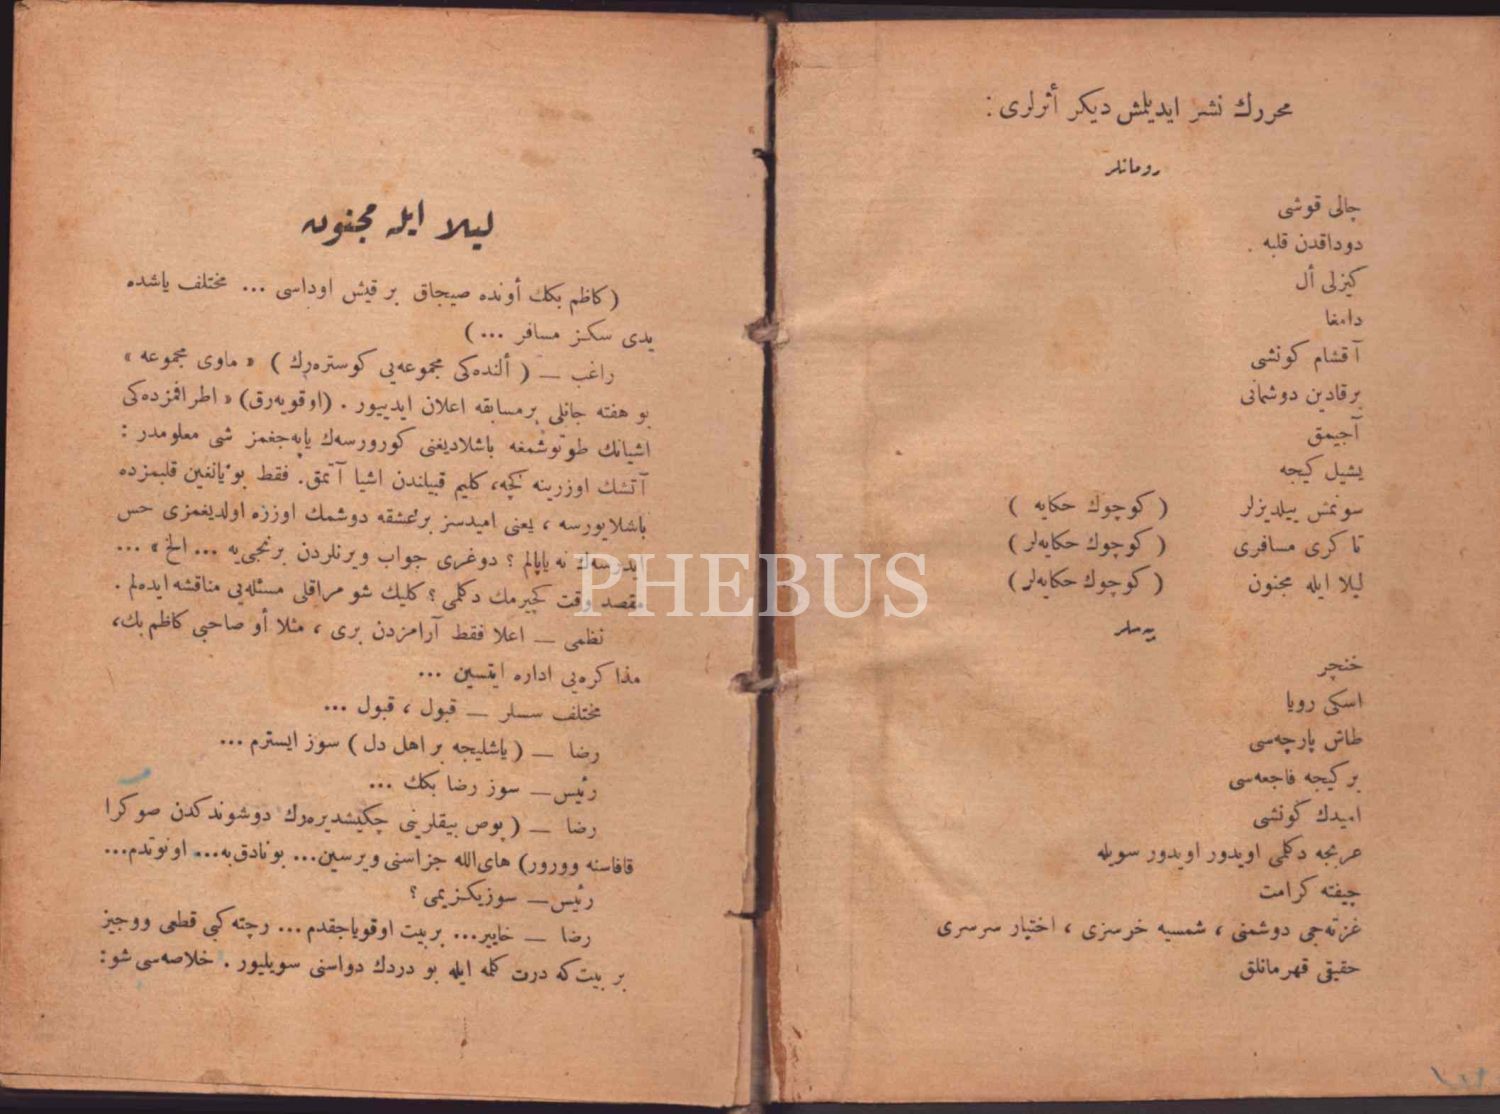 محررك نشر ايديلمش ديكر أثرلری :
رومانلر
چالی قوشی
دوداقدن قلبه .
كيزلی أل
دامغا
آقشام كونشی
برقادين دوشمانی
آجيمق
يشيل كيجه
سونمش ييلديزلر ( كوچوك حكايه )
تاكری مسافری ( كوچوك حكايه‌لر )
ليلا ايله مجنون ( كوچوك حكايه‌لر )
پيه‌سلر
خنچر
اسكی رويا
طاش پارچه‌سی
بر كيجه فاجعه‌سی
اميدك كونشی
عربجه دكلمی اويدور اويدور سويله
چيفته كرامت
غزته‌جی دوشمنی ، شمسيه خرسزی ، اختيار سرسری
حقيقی قهرمانلق
ليلا ايله مجنون
( كاظم بكك أونده صيجاق بر قيش اوداسی ... مختلف ياشده
يدی سكز مسافر ... )
راغب ــ ( ألنده‌كی مجموعه‌يی كوستره‌رك ) « ماوی مجموعه »
بو هفته جانلی بر مسابقه اعلان ايدييور . (اوقويه‌رق) « اطرافمزده‌كی
اشيانك طوتوشمغه باشلاديغنی كورورسه‌ك ياپه‌جغمز شی معلومدر :
آتشك اوزرينه كچه، كليم قبيلندن اشيا آتمق. فقط بو يانغين قلبمزده
باشلايورسه ، يعنی اميدسز برعشقه دوشمك اوزره اولديغمزی حس
ايدرسه‌ك نه ياپالم ؟ دوغری جواب ويرنلردن برنجی‌يه ... الخ » ...
مقصد وقت كچيرمك دكلمی ؟ كليك شو مراقلی مسئله‌يی مناقشه ايده‌لم .
نظمی ــ اعلا فقط آرامزدن بری ، مثلا أو صاحبی كاظم بك،
مذاكره‌يی اداره ايتسين ...
مختلف سسلر ــ قبول ، قبول ...
رضا ــ ( ياشليجه بر اهل دل ) سوز ايسترم ...
رئيس ــ سوز رضا بكك ...
رضا ــ ( پوص بيقلرينی چكيشديره‌رك دوشوندكدن صوكرا
قافاسنه وورور) های‌الله جزاسنی ويرسين... بونادق‌به... اونوتدم...
رئيس ــ سوزيكزيمی ؟
رضا ــ خايير... بر بيت اوقوياجقدم... رچته كبی قطعی ووجيز
بر بيت‌كه درت كلمه ايله بو دردك دواسنی سويليور . خلاصه‌سی شو:
PHEBUS